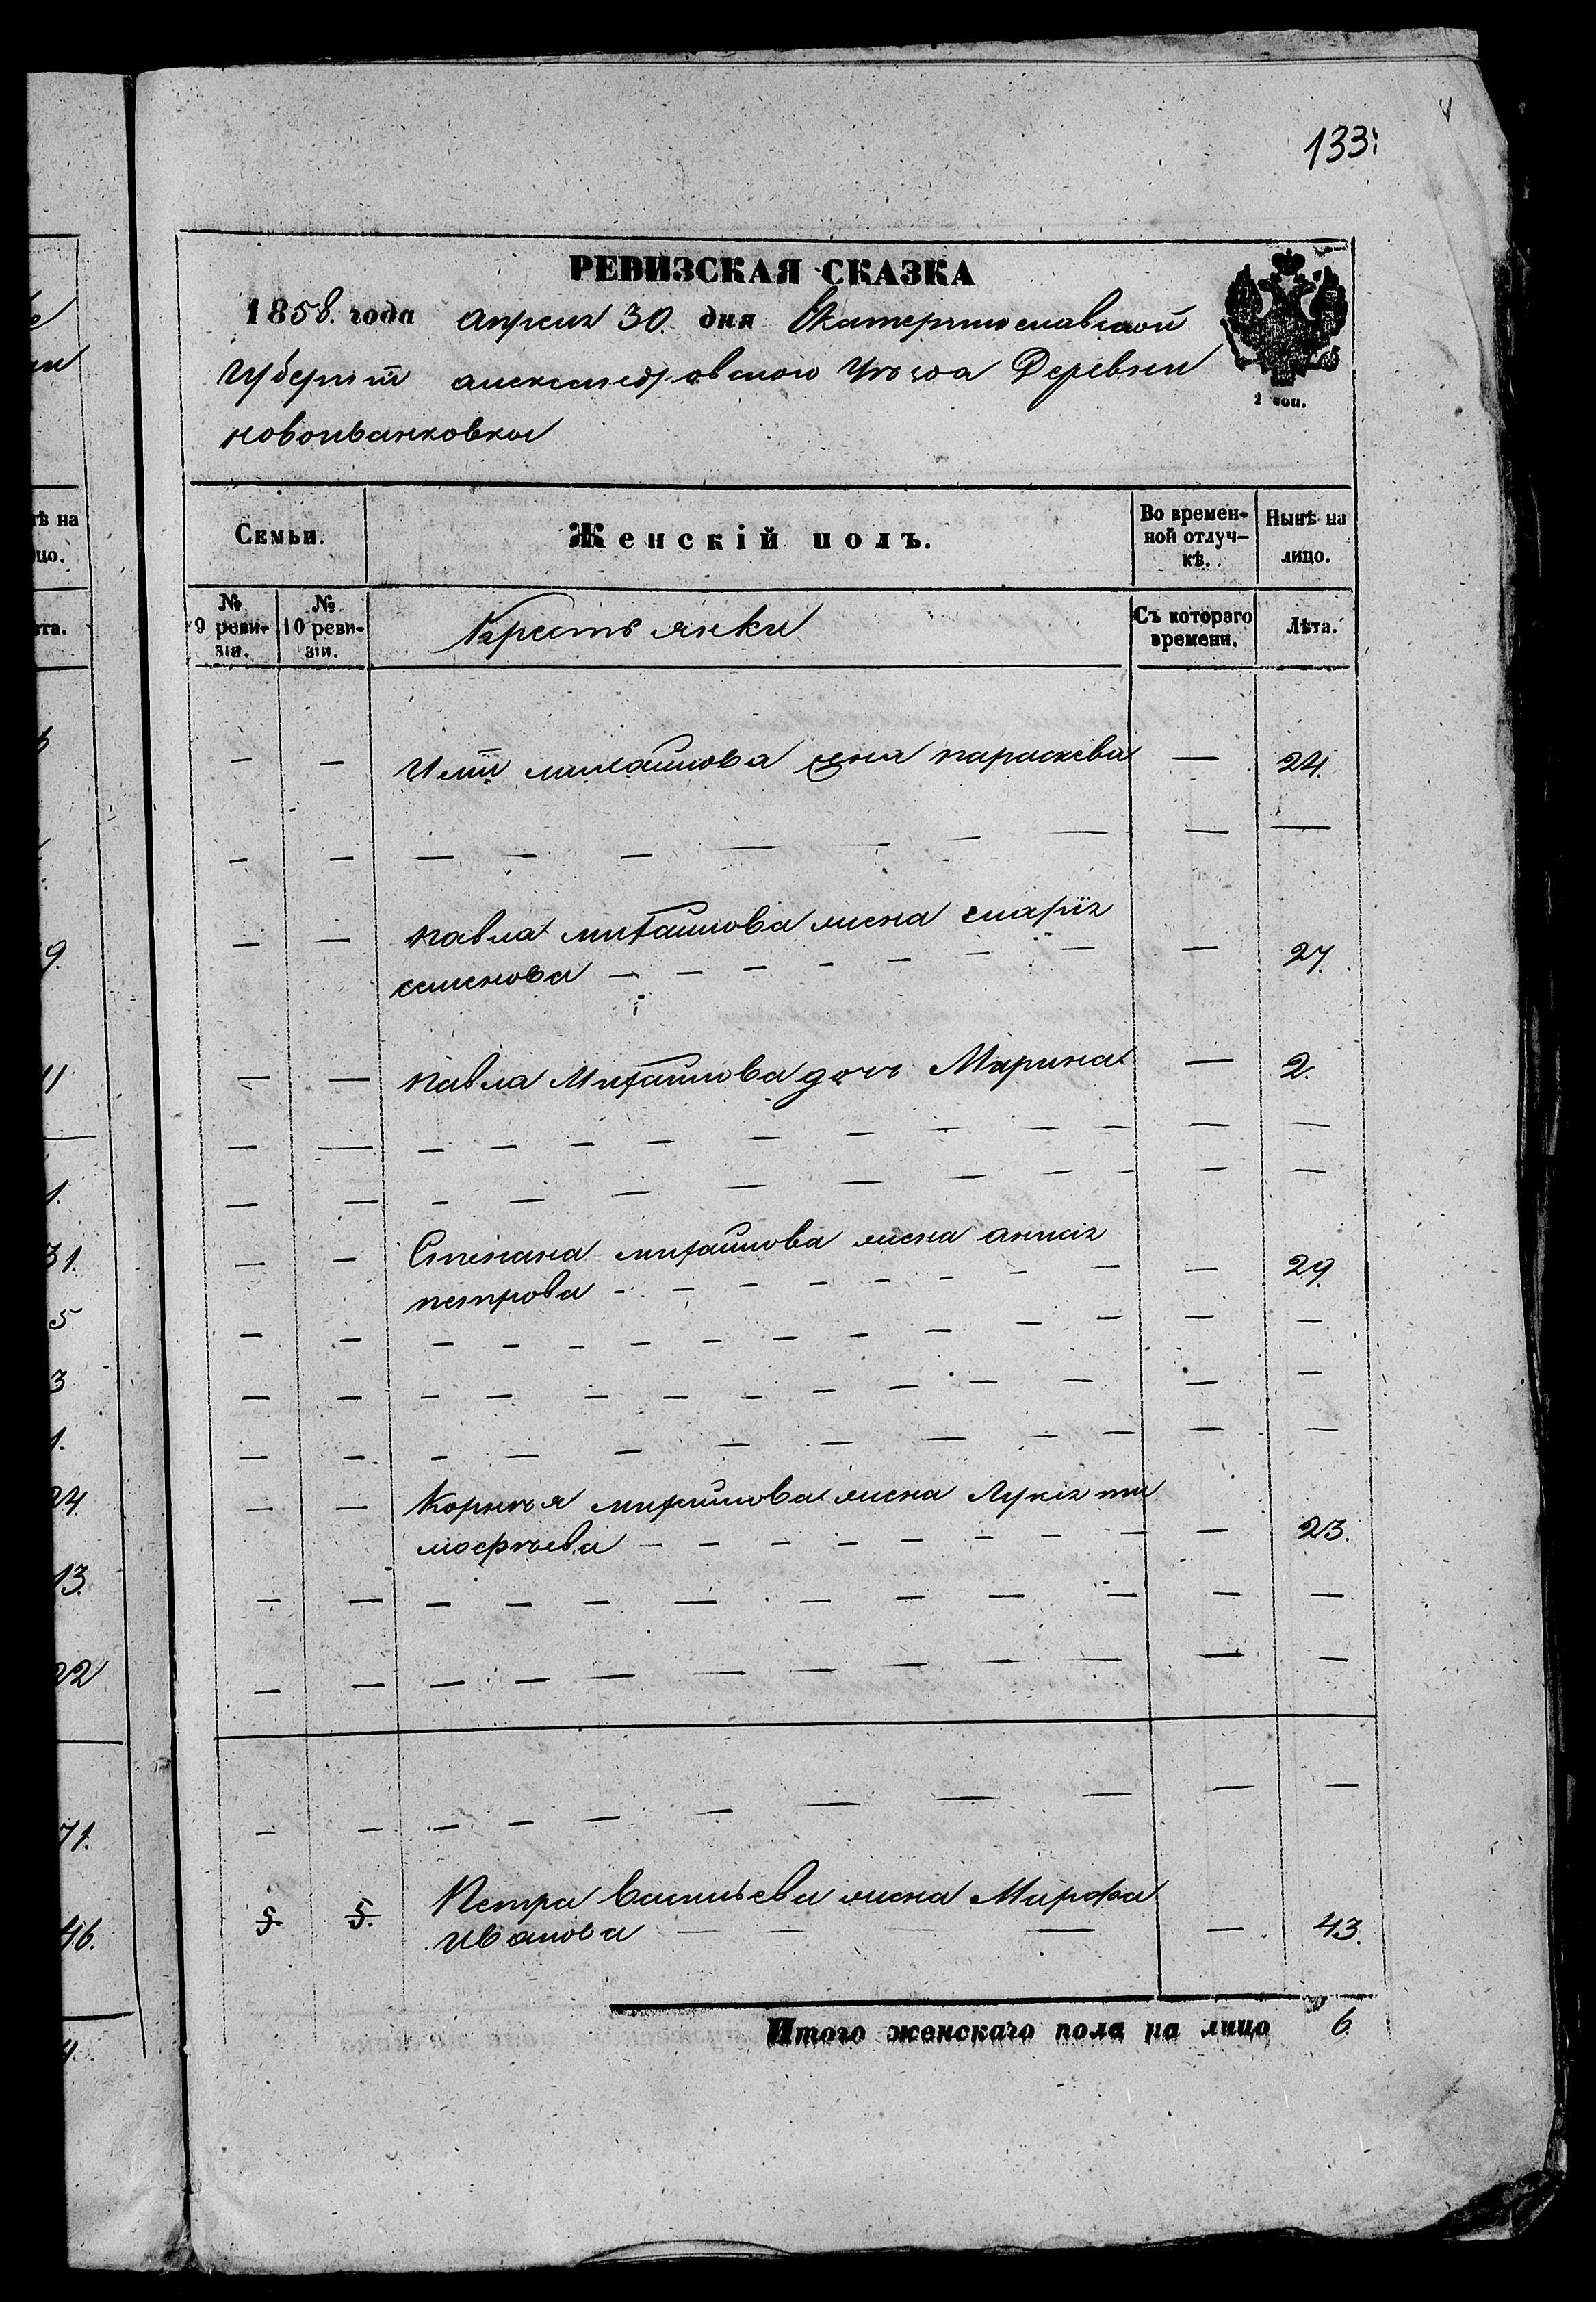 133.
РЕВИЗСКАЯ СКАЗКА
1858. года апреля 30. дня Екатеринославской
Губерніи александровского Уѣзда Деревни
новоивановки
2 коп.
Семьи.
Женскій полъ.
Во времен-
ной отлуч-
кѣ.
Нынѣ на
лицо.
№
9 реви-
зіи.
№
10 реви-
зіи.
Крестьянки
Съ котораго
времени.
Лѣта.
— — михайлова жена параскева — 24.
— — — — — — — — — — —
— — павла михайлова жена марія
семенова — — — — — — — — 27.
— — павла Михайлова дочь Марина — 2.
— — — — — — — — — — — — —
— — — — — — — — — — — —
— — Степана михайлова жена анисія
петрова — — — — — — — — 29.
— — — — — — — — — — — — — —
— — — — — — — — — — — — —
— — — — — — — — — — — —
— — Корнѣя михайлова жена Лукія ти
мофѣева — — — — — — — — 23.
— — — — — — — — — — — —
— — — — — — — — — — — — —
— — — — — — — — — — — —
5. 5. Петра васильева жена Марфа
иванова — — — — — 43.
Итого женскаго пола на лицо 6.
ѣ на
цо.
ѣта.
9.
11
1.
31.
5
3
1.
24.
13.
22
71.
46.
4.